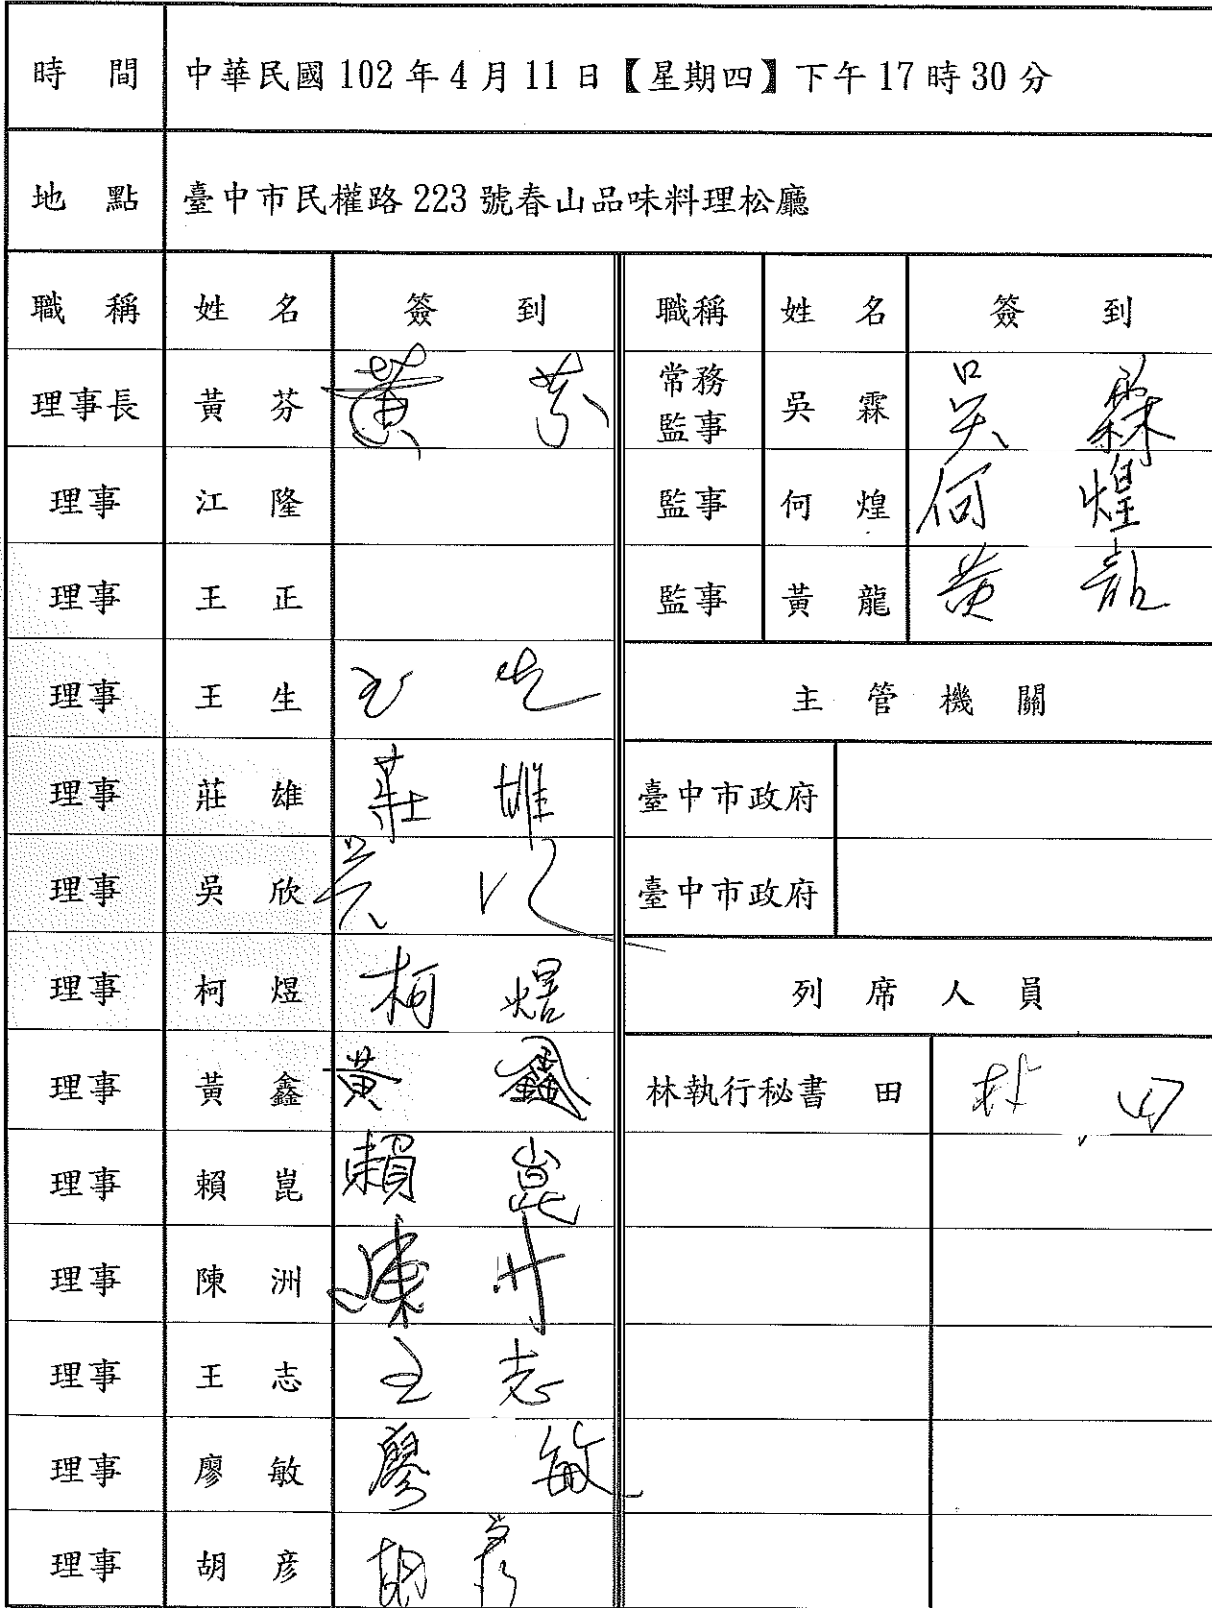 時 間 中華民國 102 年 4 月 11 日【星期四】下午 17 時 30 分
地 點 臺中市民權路 223 號春山品味料理松廳
職 稱 姓 名 簽 到 職稱 姓 名 簽 到
理事長 黃 芬 黃 芬 常務監事 吳 霖 吳 霖
理事 江 隆 監事 何 煌 何 煌
理事 王 正 監事 黃 龍 黃 龍
理事 王 生 王 生 主 管 機 關
理事 莊 雄 莊 雄 臺中市政府
理事 吳 欣 吳 欣 臺中市政府
理事 柯 煜 柯 煜 列 席 人 員
理事 黃 鑫 黃 鑫 林執行秘書 田 林 田
理事 賴 崑 賴 崑
理事 陳 洲 陳 洲
理事 王 志 王 志
理事 廖 敏 廖 敏
理事 胡 彥 胡 彥